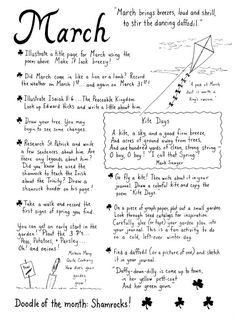 March
"March brings breezes, loud and shrill,
to stir the dancing daffodil."
Illustrate a title page for March using the
poem above. Make it look breezy!
Did March come in like a lion or a lamb? Record
the weather on March 1st... and March 31st!
Illustrate Isaiah 11:6 ... The Peaceable Kingdom.
Look up Edward Hicks and write a little about him.
Draw your tree. You may
begin to see some changes.
Research St. Patrick and write
a few sentences about him. Are
there any legends about him?
Did you know he used the
shamrock to teach the Irish
about the Trinity? Draw a
shamrock border on his page!
Take a walk and record the
first signs of spring you find.
You can get an early start in the
garden! Plant the 3 P's...
"Peas, Potatoes, + Parsley...
Oh! and onions!
Mistress Mary
Quite Contrary
How does your
garden
grow?
Doodle of the month: Shamrocks!
A peck of March
dust is worth a
king's ransom.
Kite Days
A kite, a sky, and a good firm breeze,
And acres of ground away from trees,
And one hundred yards of clean, strong string
O boy, O boy! I call that Spring!
Mark Sawyer
Go fly a kite! Then write about it in your
journal. Draw a colorful kite and copy the
poem "Kite Days".
On a piece of graph paper, plot out a small garden.
Look through seed catalogs for inspiration.
Carefully glue (yes, glue) your garden plan into
your journal. This is a fun activity to do
on a cold, left-over winter day.
Find a daffodil (or a picture of one) and sketch it
in your journal.
"Daffy-down-dilly is come up to town,
in her yellow petti-coat
And her green gown.